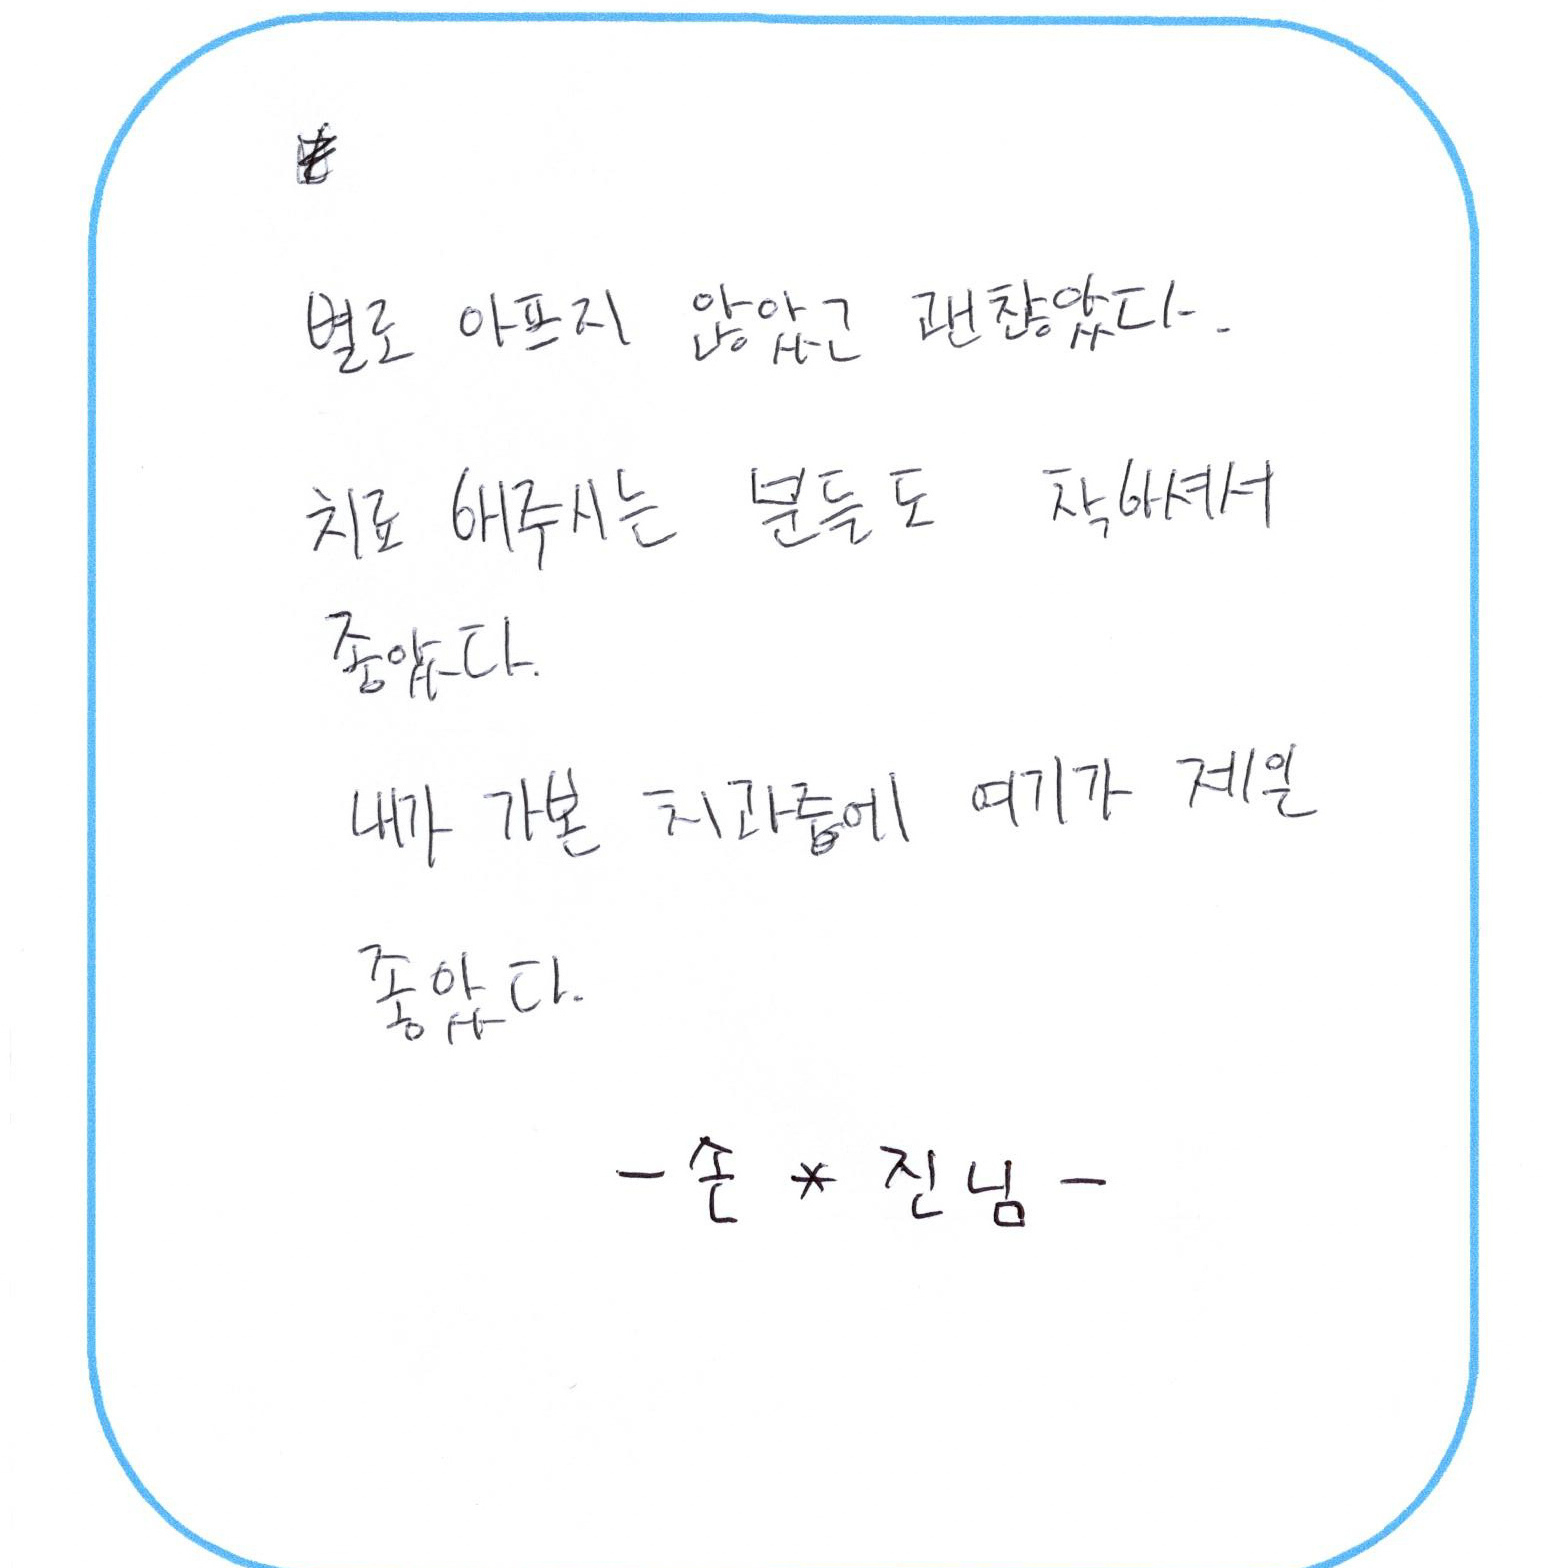 별로 아프지 않았고 괜찮았다.
치료 해주시는 분들도 착하셔서
좋았다.
내가 가본 치과중에 여기가 제일
좋았다.
-손 * 진님-